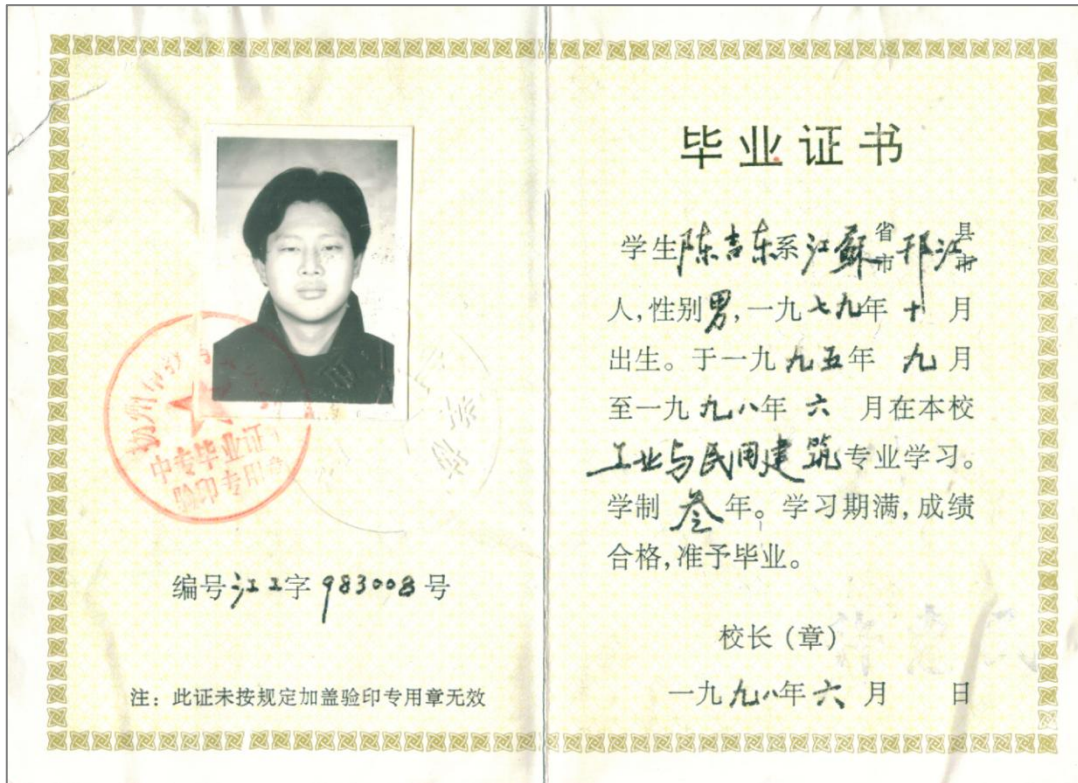 中专毕业证
验印专用章
编号江工字983008号
注：此证未按规定加盖验印专用章无效
毕业证书
学生陈吉东系江蘇省市邗江县市
人,性别男,一九七九年十月
出生。于一九九五年九月
至一九九八年六月在本校
工业与民用建筑专业学习。
学制叁年。学习期满,成绩
合格,准予毕业。
校长（章）
一九九八年六月 日